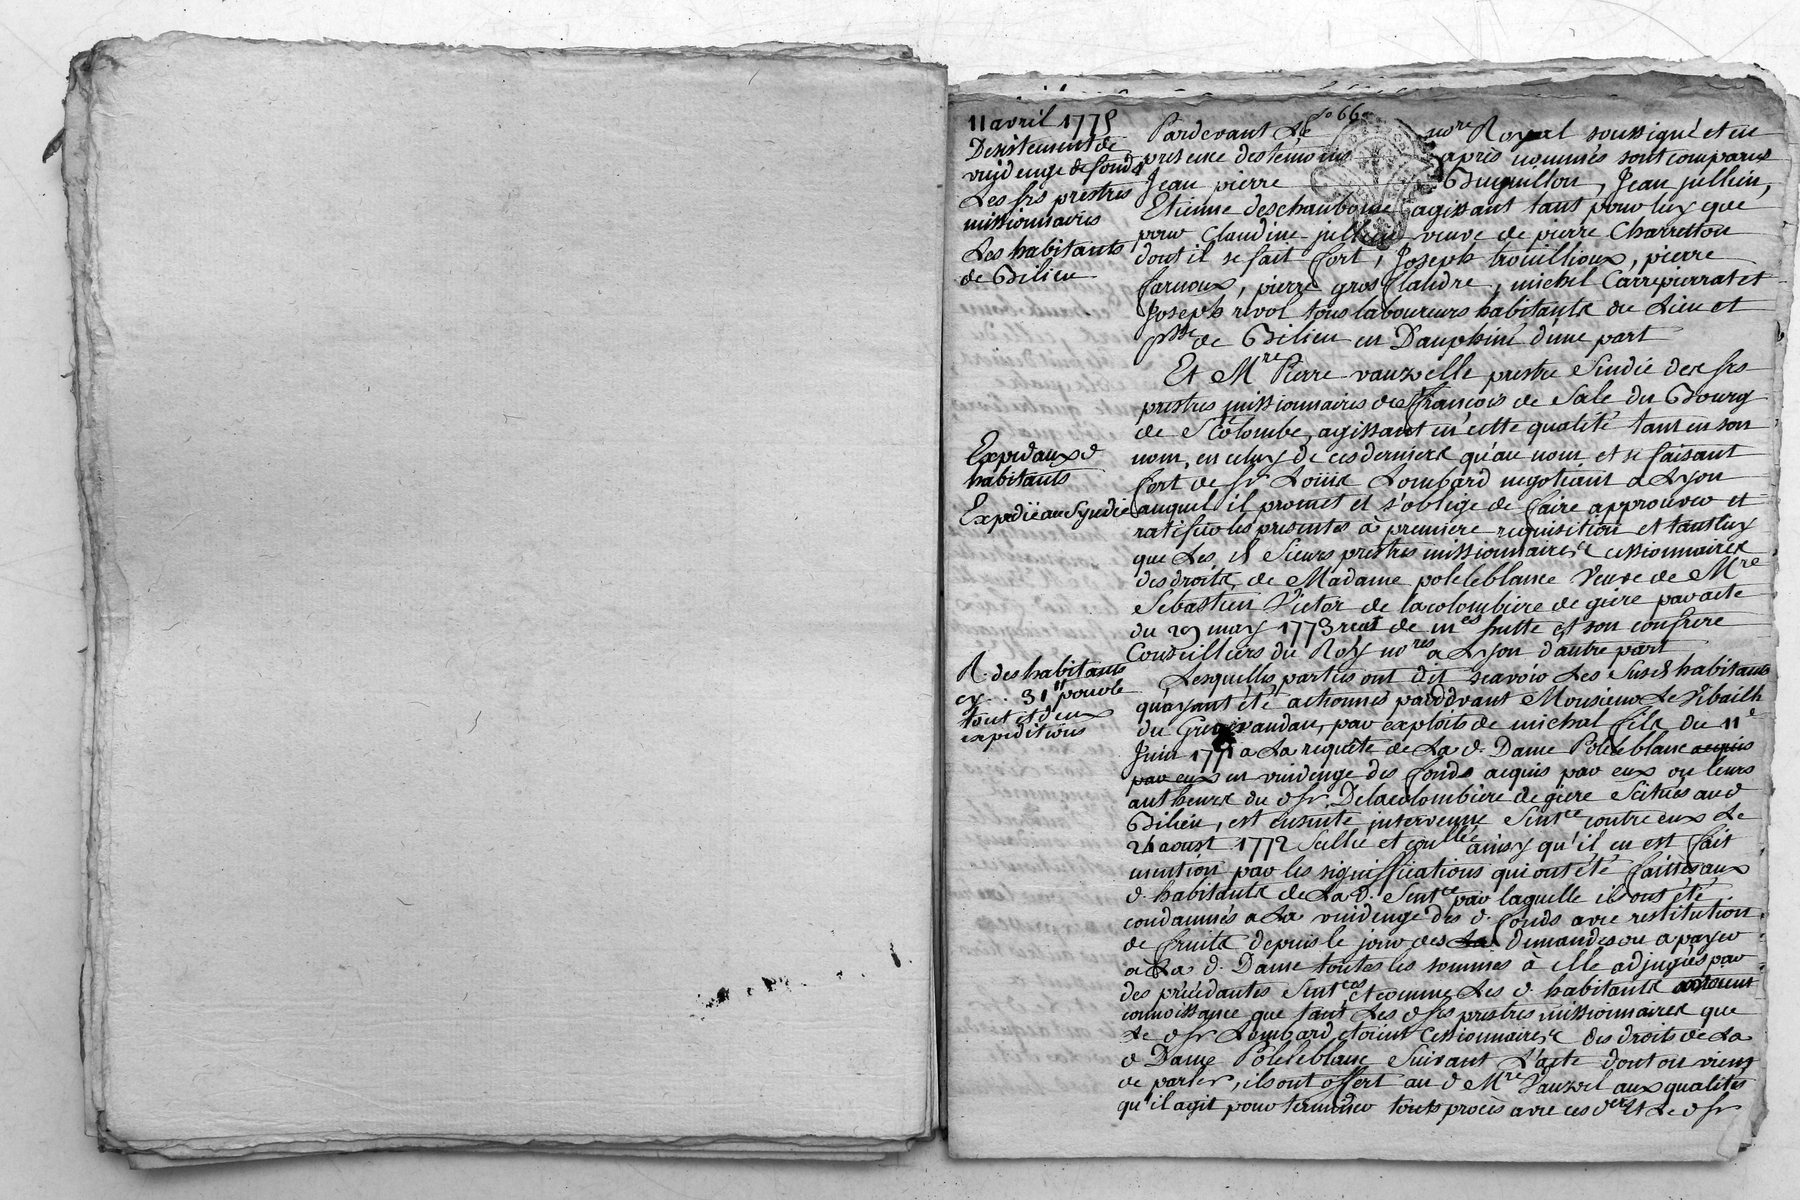 11 avril 1775
Desistement de
vuidenge de fonds
Les srs prestres
missionnaires
Les habitants
de Bilieu
Expedaux d
habitants
Expedié au Syndic
R. des habitants
cy .. 31 pour le
tout et deux
expeditions
66
Pardevant Le no.re Royal soussigné et en
presence des temoins apres nommés sont comparus
Jean pierre Buquillon, Jean jullien,
Etienne deschaubonne agissant tant pour luy que
pour Claudine jullien veuve de pierre Charreton
dont il se fait fort, Joseph trouillioux, pierre
farnoux, pierre gros flandre, michel Carrepierrat et
Joseph rivol tous laboureurs habitants du Lieu et
psse de Bilieu en Dauphiné d'une part
Et Mre Pierre vauzelle prestre Sindic des srs
prestres missionnaires de st françois de Sale du Bourg
de Ste Colombe, agissant en cette qualité tant en son
nom, en celuy de ces derniers qu'au nom et se faisant
fort de sr Louis Lombard negotiant a Lyon
auquel il promet et s'oblige de faire approuver et
ratifier les presentes à premiere requisition et tant luy
que Les d Sieurs prestres missionnaires cessionnaires
des droits de Madame poleleblanc Veuve de Mre
Sebastien Victor de lacolombiere de giere par acte
du 29 may 1773 reçut de mes frutte et son confrere
Conseillers du Roy nores a Lyon d'autre part
Lesquelles parties ont dit scavoir Les Susd habitants
qu'ayant été actionnés pardevant Monsieur Le Vibailli
du Graisivaudan, par exploits de michal fils du 11e
Juin 1771 a La requête de La d. Dame Poleleblanc acquis
par eux en vuidenge des fonds acquis par eux ou leurs
autheurs du d sr. Delacolombiere de giere Scitués aud
Bilieu, est ensuite intervenue Sentce contre eux Le
24 aoust 1772 Scellée et conllée ainsy qu'il en est fait
mention par les signiffications qui ont été faittes aux
d. habitants de La d. Sentce par laquelle ils ont été
condamnés a La vuidenge des d. fonds avec restitution
de fruits depuis le jour des La demandes ou a payer
a La d. Dame toutes les sommes à elle adjugées par
des précédantes Sentces et comme Les d. habitants avoient
connoissance que tant Les d srs prestres missionnaires que
Le d sr Lombard etoient Cessionnaires des droits de La
d Dame Poleleblanc Suivant L'acte dont on vient
de parler, ils ont offert au d Mre Vauzel aux qualités
qu'il agit pour terminer touts procès avec ces ders et Le d sr